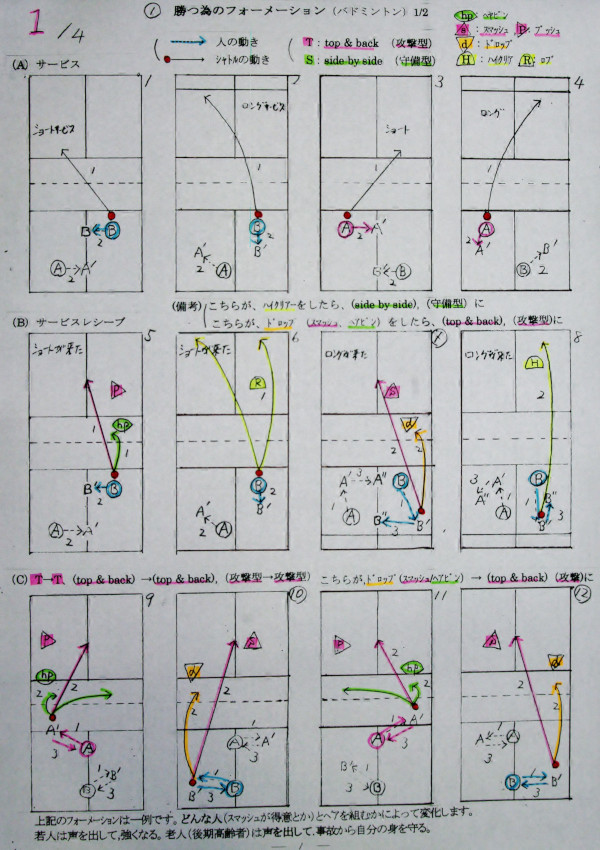 1/4
① 勝つ為のフォーメーション (バドミントン) 1/2
hp: ヘアピン
s: スマッシュ P: プッシュ
d: ドロップ
H: ハイクリア R: ロブ
人の動き
シャトルの動き
T: top & back (攻撃型)
S: side by side (守備型)
(A) サービス
1 2 3 4
ショートサービス ロングサービス ショート ロング
1 1 1 1
B B 2 B 2 B' A A' 2 A A' 2
A A' 2 A' A 2 B B 2 B B' 2
(備考) こちらが、ハイクリアーをしたら、(side by side), (守備型) に
こちらが、ドロップ (スマッシュ, ヘアピン) をしたら、(top & back), (攻撃型)に
(B) サービスレシーブ
5 6 7 8
ショートが来た ショートが来た ロングが来た ロングが来た
P hp R s d H
1 1 1 2 2 2
B B 2 B 2 B' A' 3 A'' B 1 A 1 B'' B' 3 3 A' A'' 1 A B 1 B'' B' 3
A A' 2 A' A 2
(C) T→T (top & back) →(top & back), (攻撃型→攻撃型) こちらが,ドロップ(スマッシュ/ヘアピン) → (top & back) (攻撃)に
9 ⑩ 11 ⑫
P hp 2 2 2 A' 1 A 3 B 1 B' 3
d 2 2 A 1 A' 3 B' 1 B 3
P hp 2 2 A' 1 A 3 B' 1 B 3
d 2 2 A' 1 A 3 B 1 B' 3
上記のフォーメーションは一例です。どんな人(スマッシュが得意とか)とペアを組むかによって変化します。
若人は声を出して,強くなる。老人(後期高齢者)は声を出して,事故から自分の身を守る。
— 1 —